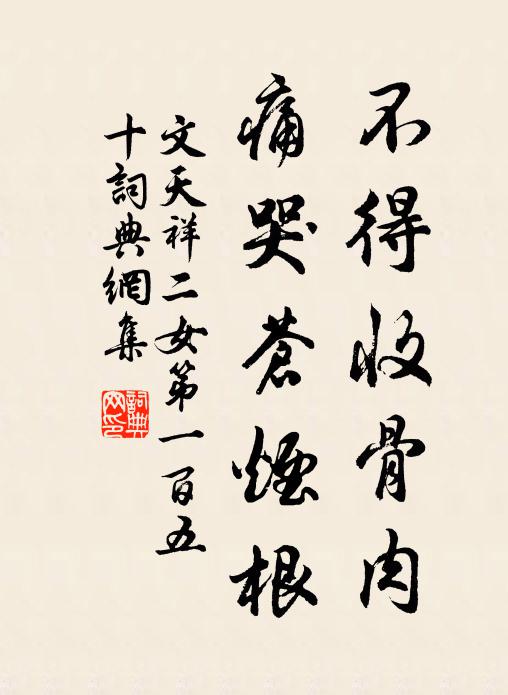 不得收骨肉
痛哭蒼煙根
文天祥二女第一百五
十詞典網集
詞典
网印